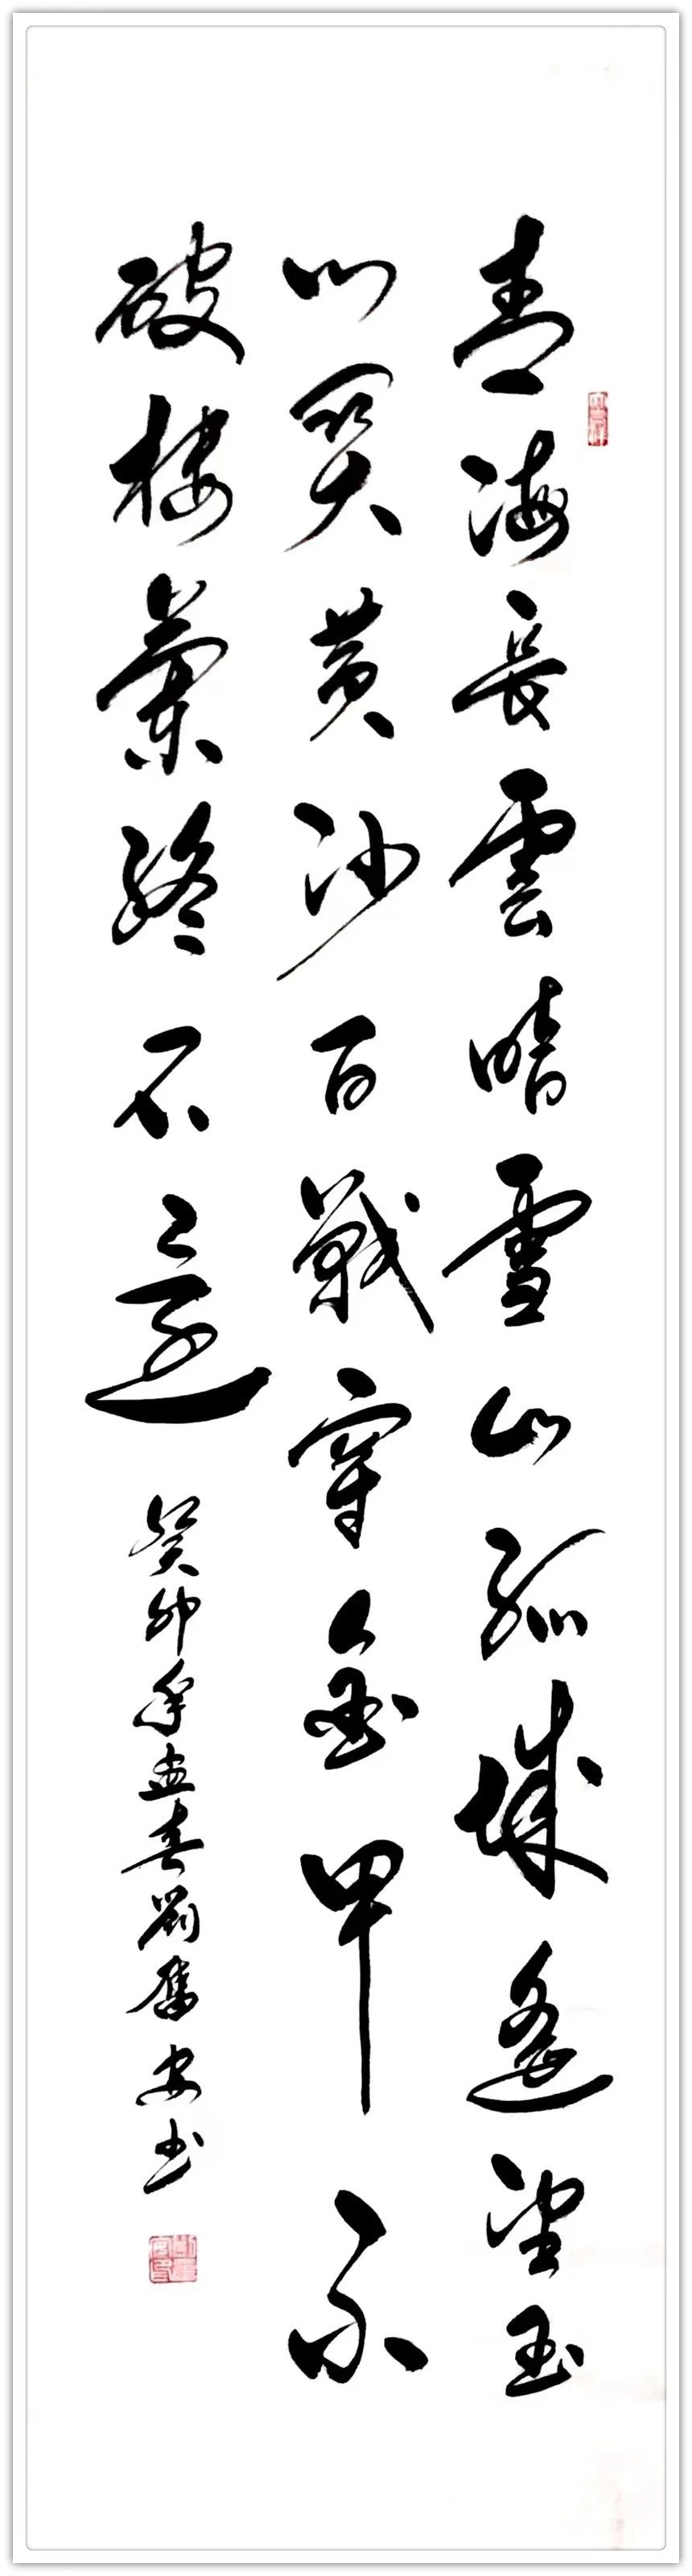 青海長雲暗雪山孤城遙望玉
門關黃沙百戰穿金甲不
破樓蘭終不還
癸卯年孟春劉奮安书